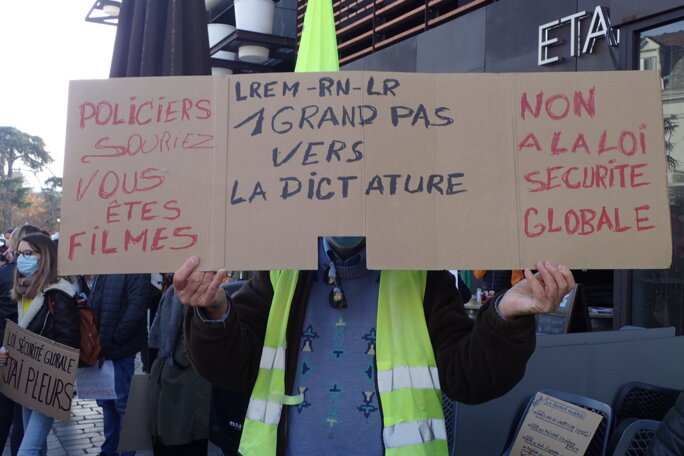 POLICIERS
SOURIEZ
VOUS
ÊTES
FILMES
LREM-RN-LR
1 GRAND PAS
VERS
LA DICTATURE
NON
A LA LOÏ
SECURITE
GLOBALE
ETA
LOI SÉCURITÉ GLOBALE
J'AI PLEURS